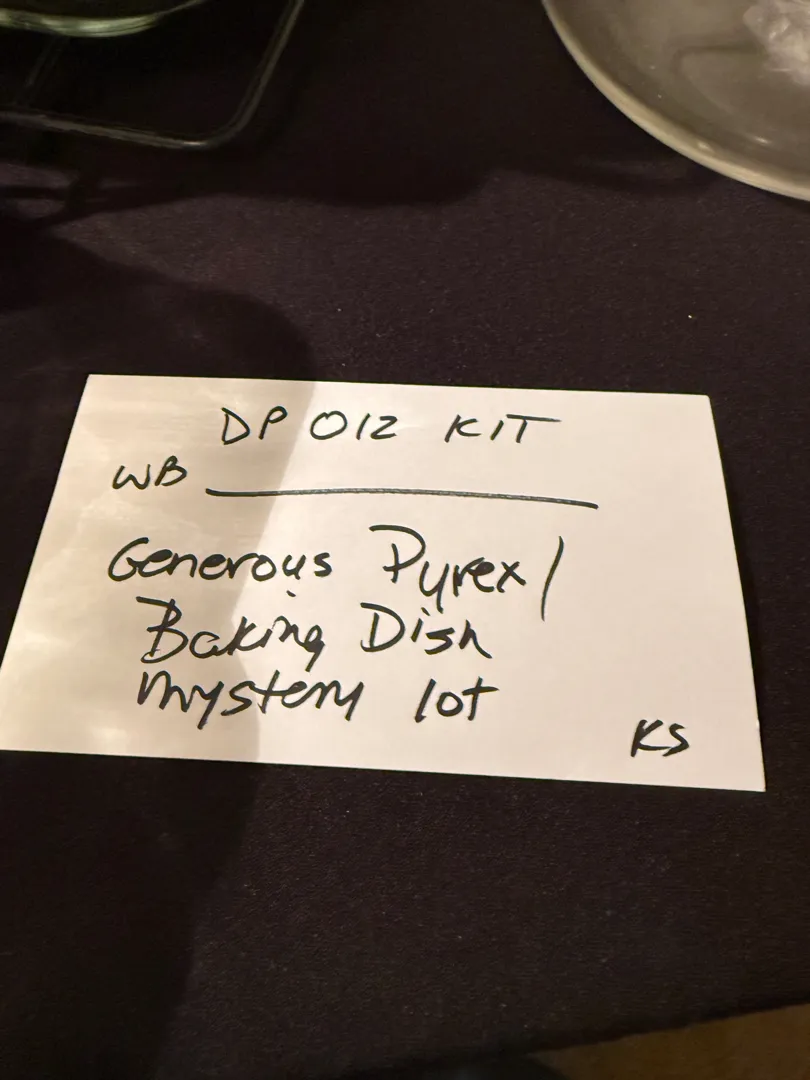 DP 012 KIT
WB ________________
Generous Pyrex/
Baking Dish
mystery lot
KS